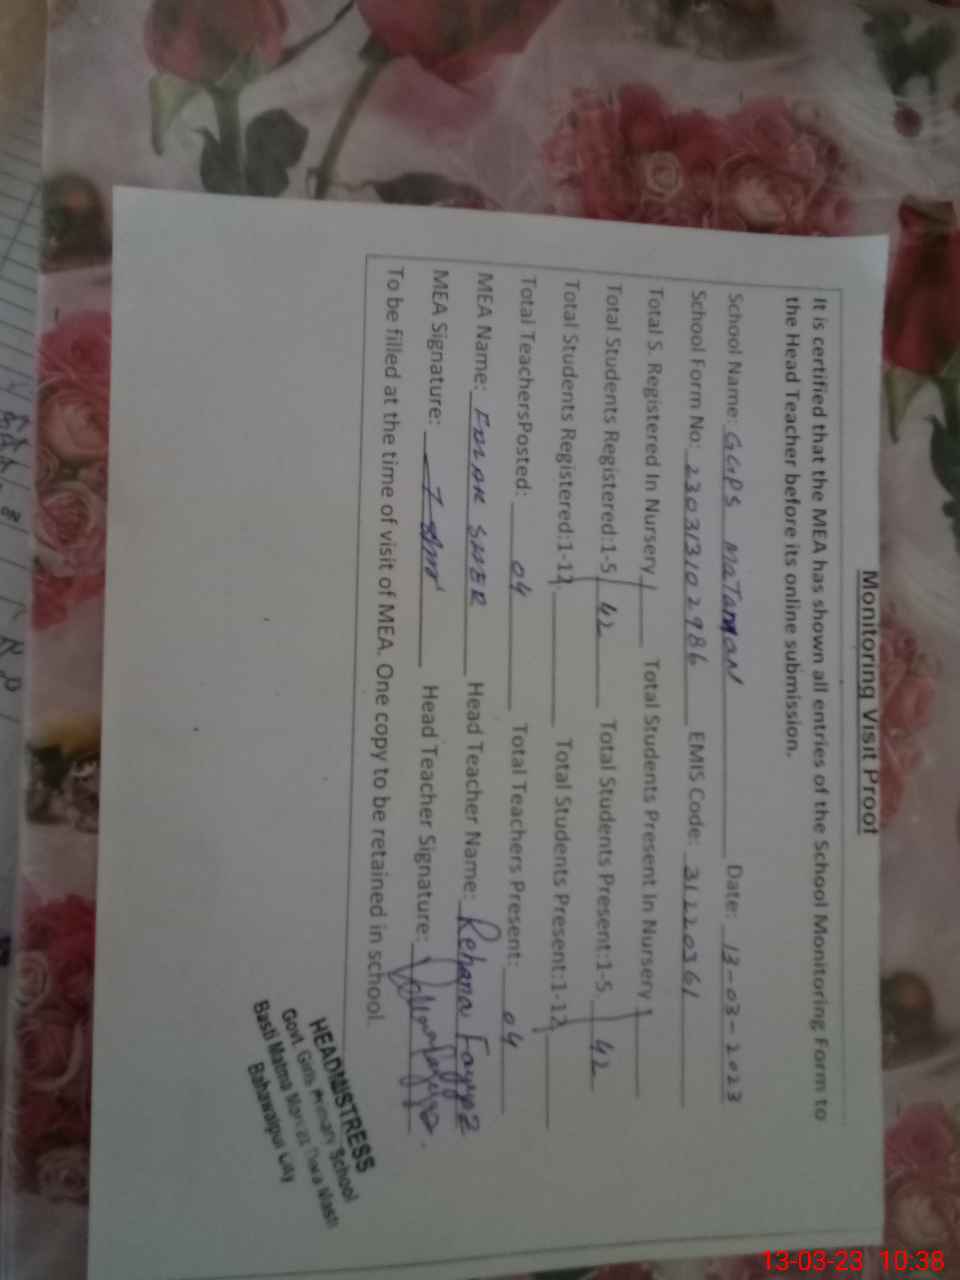 Monitoring Visit Proof
It is certified that the MEA has shown all entries of the School Monitoring Form to
the Head Teacher before its online submission.
School Name: GGPS MATAMAN Date: 13-03-2023
School Form No: 230313102986 EMIS Code: 31220361
Total S. Registered In Nursery Total Students Present In Nursery
Total Students Registered:1-5 42 Total Students Present:1-5 42
Total Students Registered:1-12 Total Students Present:1-12
Total TeachersPosted: 04 Total Teachers Present: 04
MEA Name: SHER Head Teacher Name: Rehana
MEA Signature: Head Teacher Signature:
To be filled at the time of visit of MEA. One copy to be retained in school.
HEADMISTRESS
Govt. Girls Primary School
Basti
Bahawalpur City
13-03-23 10:38